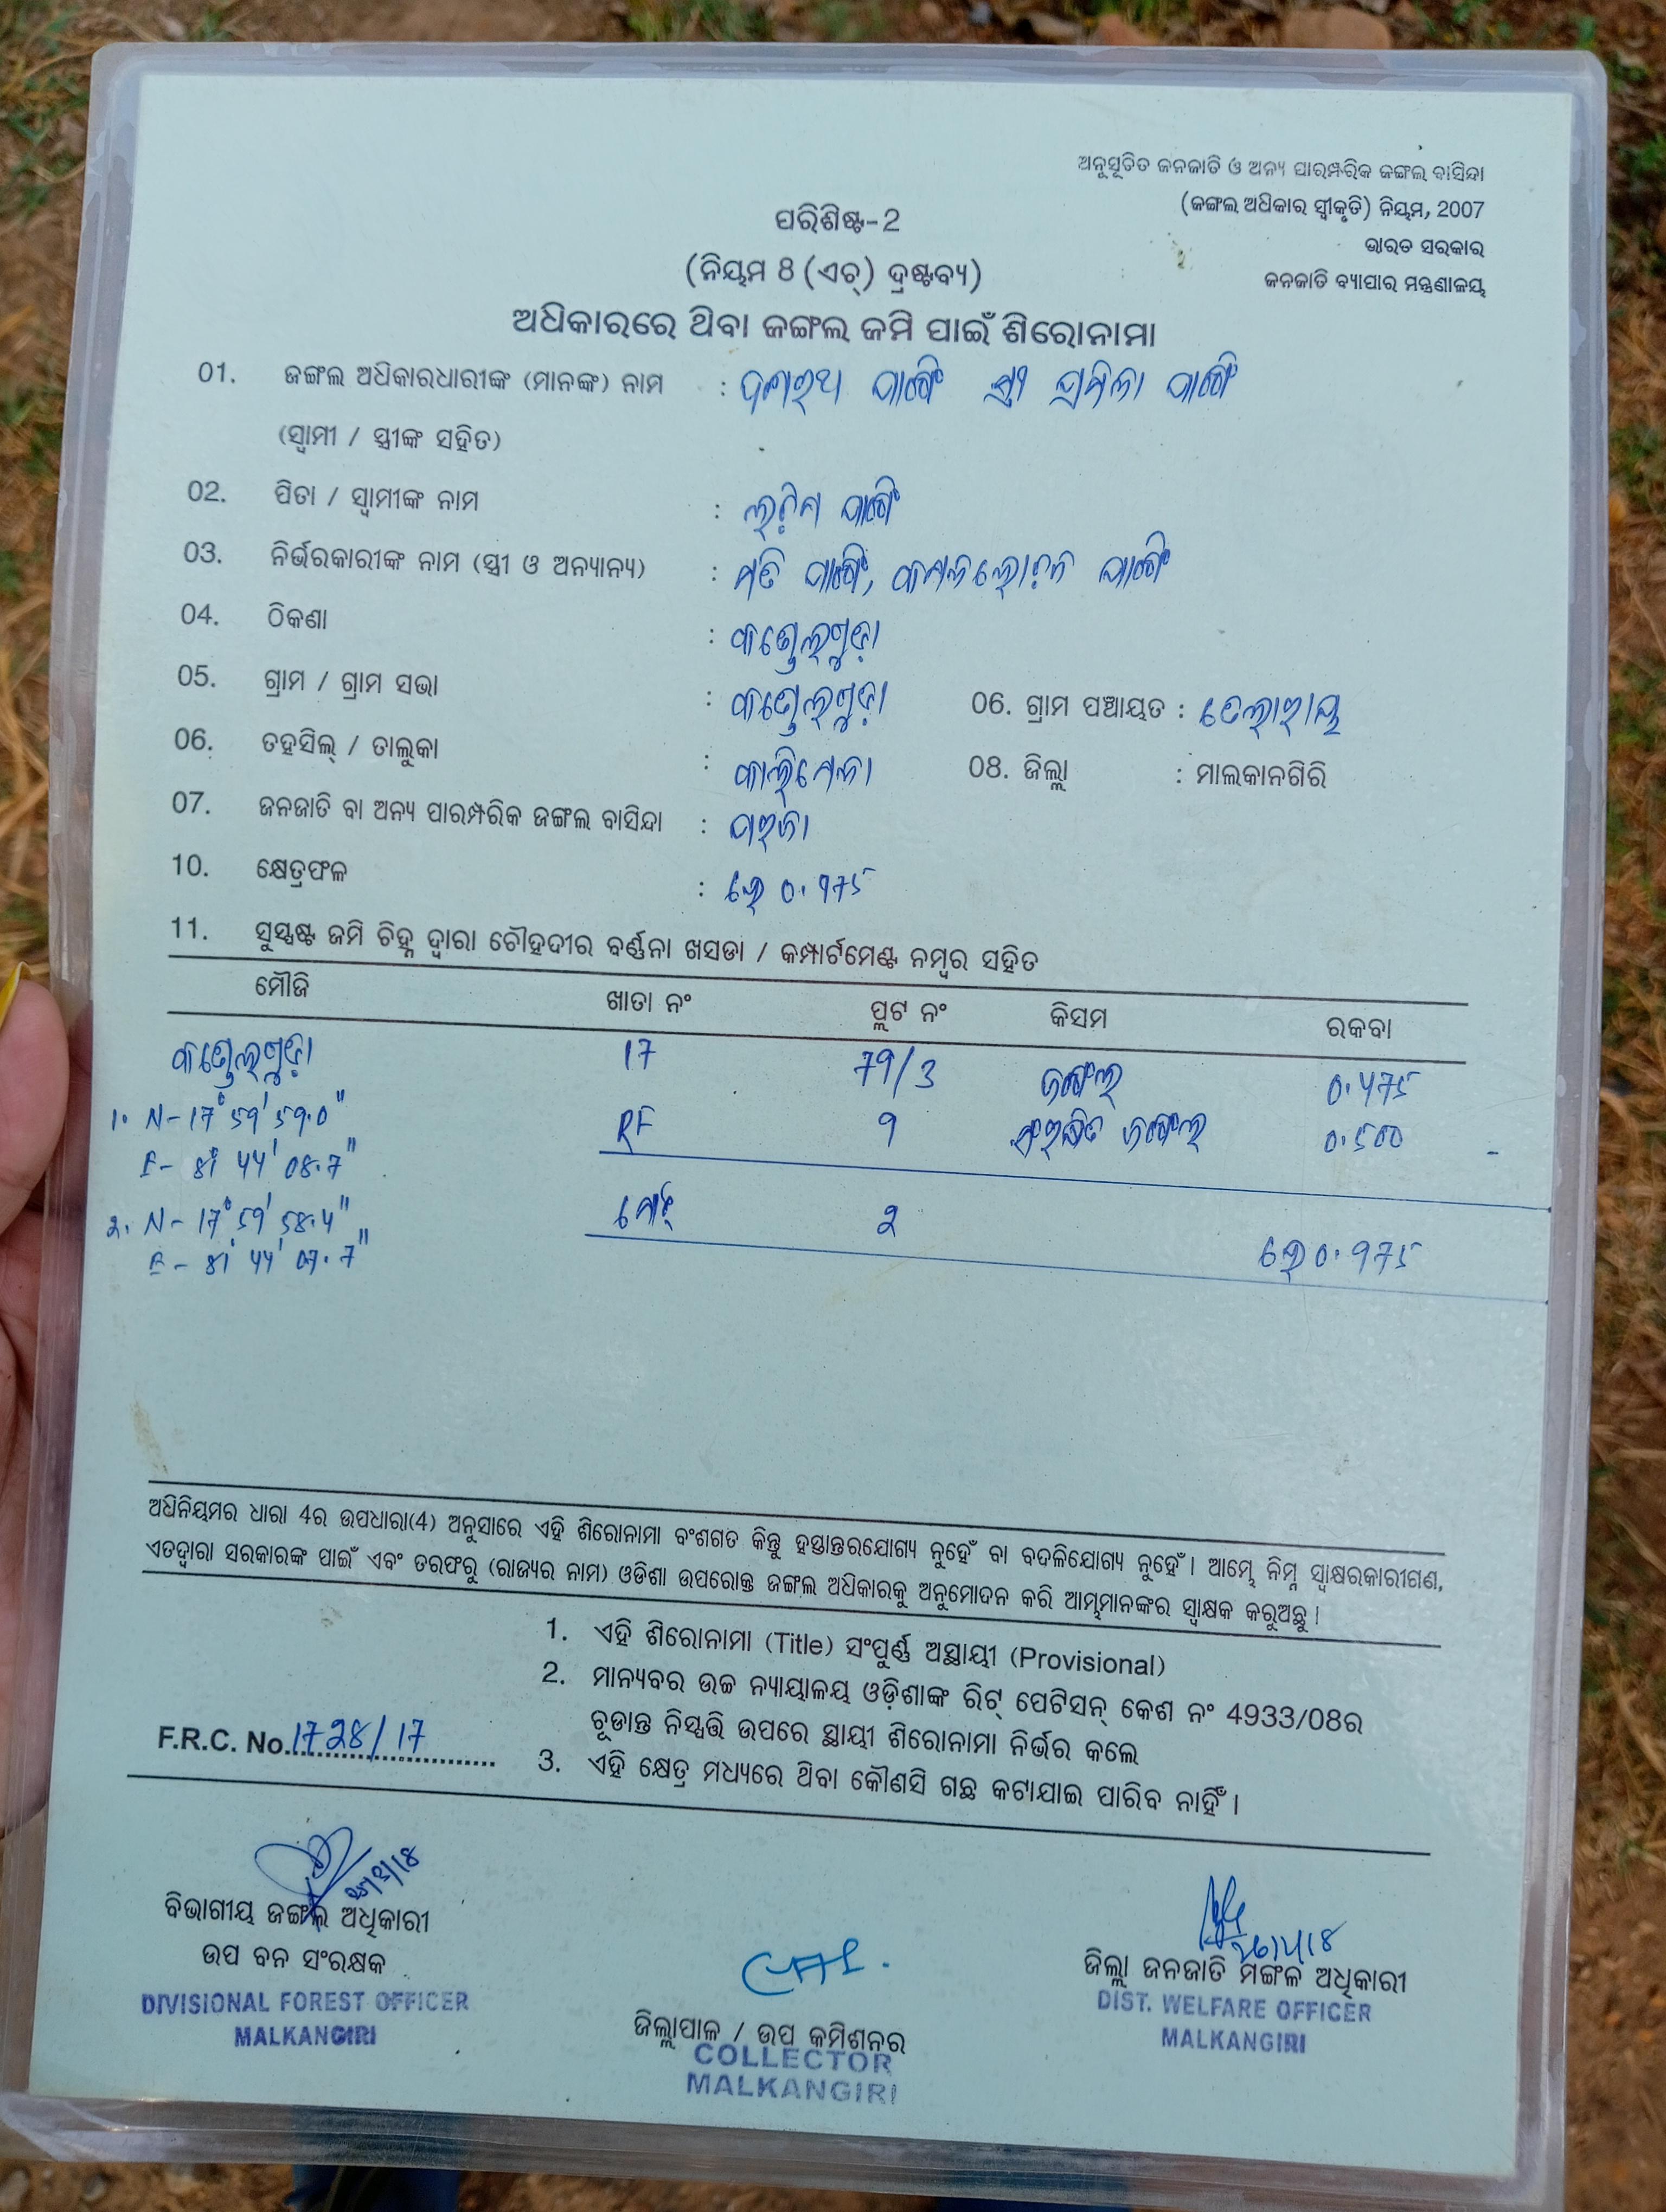 ଅନୁସୂଚିତ ଜନଜାତି ଓ ଅନ୍ୟ ପାରମ୍ପରିକ ଜଙ୍ଗଲ ବାସିନ୍ଦା
(ଜଙ୍ଗଲ ଅଧିକାର ସ୍ୱୀକୃତି) ନିୟମ, 2007
ଭାରତ ସରକାର
ଜନଜାତି ବ୍ୟାପାର ମନ୍ତ୍ରଣାଳୟ
ପରିଶିଷ୍ଟ-2
(ନିୟମ 8 (ଏଚ୍) ଦ୍ରଷ୍ଟବ୍ୟ)
ଅଧିକାରରେ ଥିବା ଜଙ୍ଗଲ ଜମି ପାଇଁ ଶିରୋନାମା
01. ଜଙ୍ଗଲ ଅଧିକାରଧାରୀଙ୍କ (ମାନଙ୍କ) ନାମ : ଦଶରଥ ପାଙ୍ଗି ସ୍ତ୍ରୀ ପ୍ରମିଳା ପାଙ୍ଗି
(ସ୍ୱାମୀ / ସ୍ତ୍ରୀଙ୍କ ସହିତ)
02. ପିତା / ସ୍ୱାମୀଙ୍କ ନାମ : ପାଙ୍ଗି
03. ନିର୍ଭରକାରୀଙ୍କ ନାମ (ସ୍ତ୍ରୀ ଓ ଅନ୍ୟାନ୍ୟ) : ମତି ପାଙ୍ଗି, କମଳଲୋଚନ ପାଙ୍ଗି
04. ଠିକଣା : କଣ୍ଡେଲଗୁଡ଼ା
05. ଗ୍ରାମ / ଗ୍ରାମ ସଭା : କଣ୍ଡେଲଗୁଡ଼ା 06. ଗ୍ରାମ ପଞ୍ଚାୟତ : ତେଲରାୟ
06. ତହସିଲ୍ / ତାଲୁକା : କାଲିମେଳା 08. ଜିଲ୍ଲା : ମାଲକାନଗିରି
07. ଜନଜାତି ବା ଅନ୍ୟ ପାରମ୍ପରିକ ଜଙ୍ଗଲ ବାସିନ୍ଦା : ପରଜା
10. କ୍ଷେତ୍ରଫଳ : ହେ 0.975
11. ସୁସ୍ପଷ୍ଟ ଜମି ଚିହ୍ନ ଦ୍ୱାରା ଚୌହଦୀର ବର୍ଣ୍ଣନା ଖସଡା / କମ୍ପାର୍ଟମେଣ୍ଟ ନମ୍ବର ସହିତ
ମୌଜି ଖାତା ନଂ ପ୍ଲଟ ନଂ କିସମ ରକବା
କଣ୍ଡେଲଗୁଡ଼ା 17 79/3 ଜଙ୍ଗଲ 0.475
1. N-17° 59' 59.0" RF 9 ସଂରକ୍ଷିତ ଜଙ୍ଗଲ 0.500
E- 81° 44' 08.7"
2. N-17° 59' 58.4" ମୋଟ୍ 2 ହେ 0.975
E- 81° 44' 07.7"
ଅଧିନିୟମର ଧାରା 4ର ଉପଧାରା(4) ଅନୁସାରେ ଏହି ଶିରୋନାମା ବଂଶଗତ କିନ୍ତୁ ହସ୍ତାନ୍ତରଯୋଗ୍ୟ ନୁହେଁ ବା ବଦଳିଯୋଗ୍ୟ ନୁହେଁ। ଆମ୍ଭେ ନିମ୍ନ ସ୍ୱାକ୍ଷରକାରୀଗଣ,
ଏତଦ୍ୱାରା ସରକାରଙ୍କ ପାଇଁ ଏବଂ ତରଫରୁ (ରାଜ୍ୟର ନାମ) ଓଡିଶା ଉପରୋକ୍ତ ଜଙ୍ଗଲ ଅଧିକାରକୁ ଅନୁମୋଦନ କରି ଆମ୍ଭମାନଙ୍କର ସ୍ୱାକ୍ଷକ କରୁଅଛୁ।
1. ଏହି ଶିରୋନାମା (Title) ସଂପୁର୍ଣ୍ଣ ଅସ୍ଥାୟୀ (Provisional)
2. ମାନ୍ୟବର ଉଚ୍ଚ ନ୍ୟାୟାଳୟ ଓଡ଼ିଶାଙ୍କ ରିଟ୍ ପେଟିସନ୍ କେଶ ନଂ 4933/08ର
ଚୂଡାନ୍ତ ନିସ୍ପତ୍ତି ଉପରେ ସ୍ଥାୟୀ ଶିରୋନାମା ନିର୍ଭର କଲେ
F.R.C. No. 1728/17
3. ଏହି କ୍ଷେତ୍ର ମଧ୍ୟରେ ଥିବା କୌଣସି ଗଛ କଟାଯାଇ ପାରିବ ନାହିଁ।
ବିଭାଗୀୟ ଜଙ୍ଗଲ ଅଧିକାରୀ
ଉପ ବନ ସଂରକ୍ଷକ
DIVISIONAL FOREST OFFICER
MALKANGIRI
ଜିଲ୍ଲାପାଳ / ଉପ କମିଶନର
COLLECTOR
MALKANGIRI
ଜିଲ୍ଲା ଜନଜାତି ମଙ୍ଗଳ ଅଧିକାରୀ
DIST. WELFARE OFFICER
MALKANGIRI